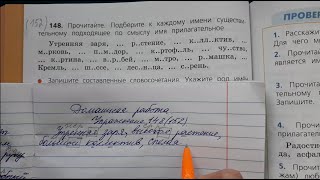 (152)
148. Прочитайте. Подберите к каждому имени существи-
тельному подходящее по смыслу имя прилагательное.
Утренняя заря, ... р..стение, ... к..лл..ктив,
... м..рковь, ... п..м..дор, ... к..ртоф..ль, ... чу..ство,
... к..ртина, ... в..р..бей, ... м..тро, ... р..машка, ...
Кремль, ... ш..ссе, ... лес..ница, ... с..рень.
Запишите составленные словосочетания. Укажите род имён
ПРОВЕР
1. Расскажи
Для чего м
2. Прочитай
прилагательн
3. Прочитай
Запишите.
Радостн
да, асфал
Домашняя работа
Упражнение 148 (152)
Утренняя заря, растение,
коллектив, спелая